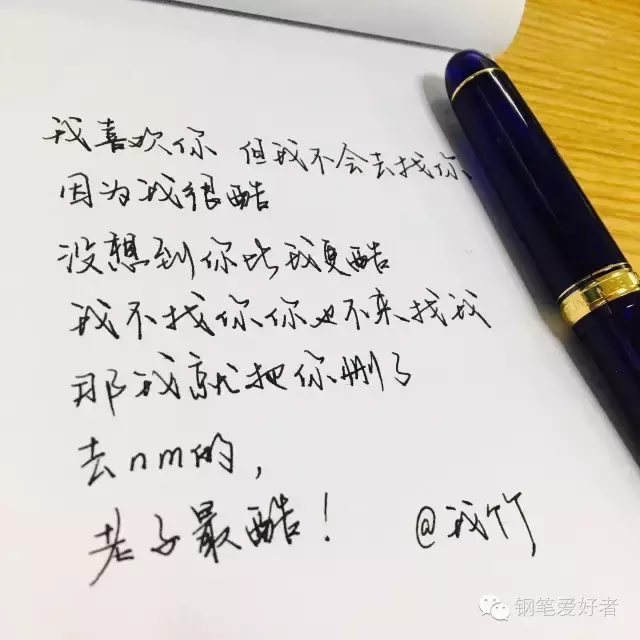 我喜欢你 但我不会去找你
因为我很酷
没想到你比我更酷
我不找你你也不来找我
那我就把你删了
去nm的，
老子最酷！ @我竹
钢笔爱好者